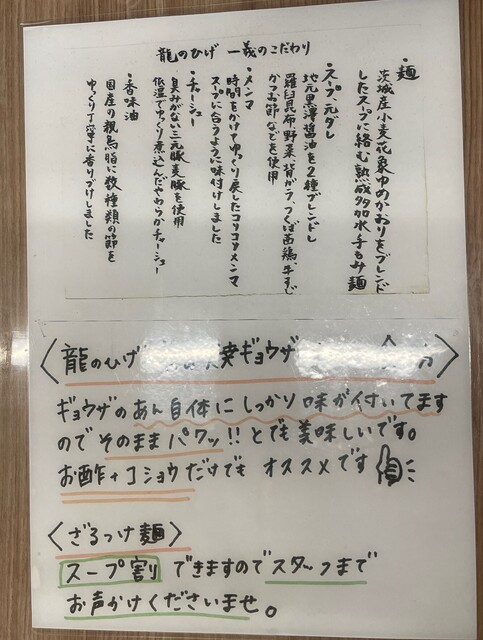 龍のひげ 一義のこだわり
・麺
茨城産小麦花象ゆめかおりをブレンド
したスープに絡む熟成多加水手もみ麺
・スープ、元ダレ
地元黒澤醤油を2種ブレンドし
羅臼昆布、野菜、背ガラ、つくば茜鶏、牛すじ
かつお節などを使用
・メンマ
時間をかけてゆっくり戻したコリコリメンマ
スープに合うように味付けしました
・チャーシュー
臭みがない三元豚麦豚を使用
低温でゆっくり煮込んだやわらかチャーシュー
・香味油
国産の親鳥脂に数種類の節を
ゆっくり丁寧に香りづけしました
〈龍のひげ ギョウザ 方〉
ギョウザのあん自体にしっかり味が付いてます
のでそのままパクッ!!とても美味しいです。
お酢+コショウだけでも オススメです
〈ざるつけ麺〉
スープ割りできますのでスタッフまで
お声かけくださいませ。